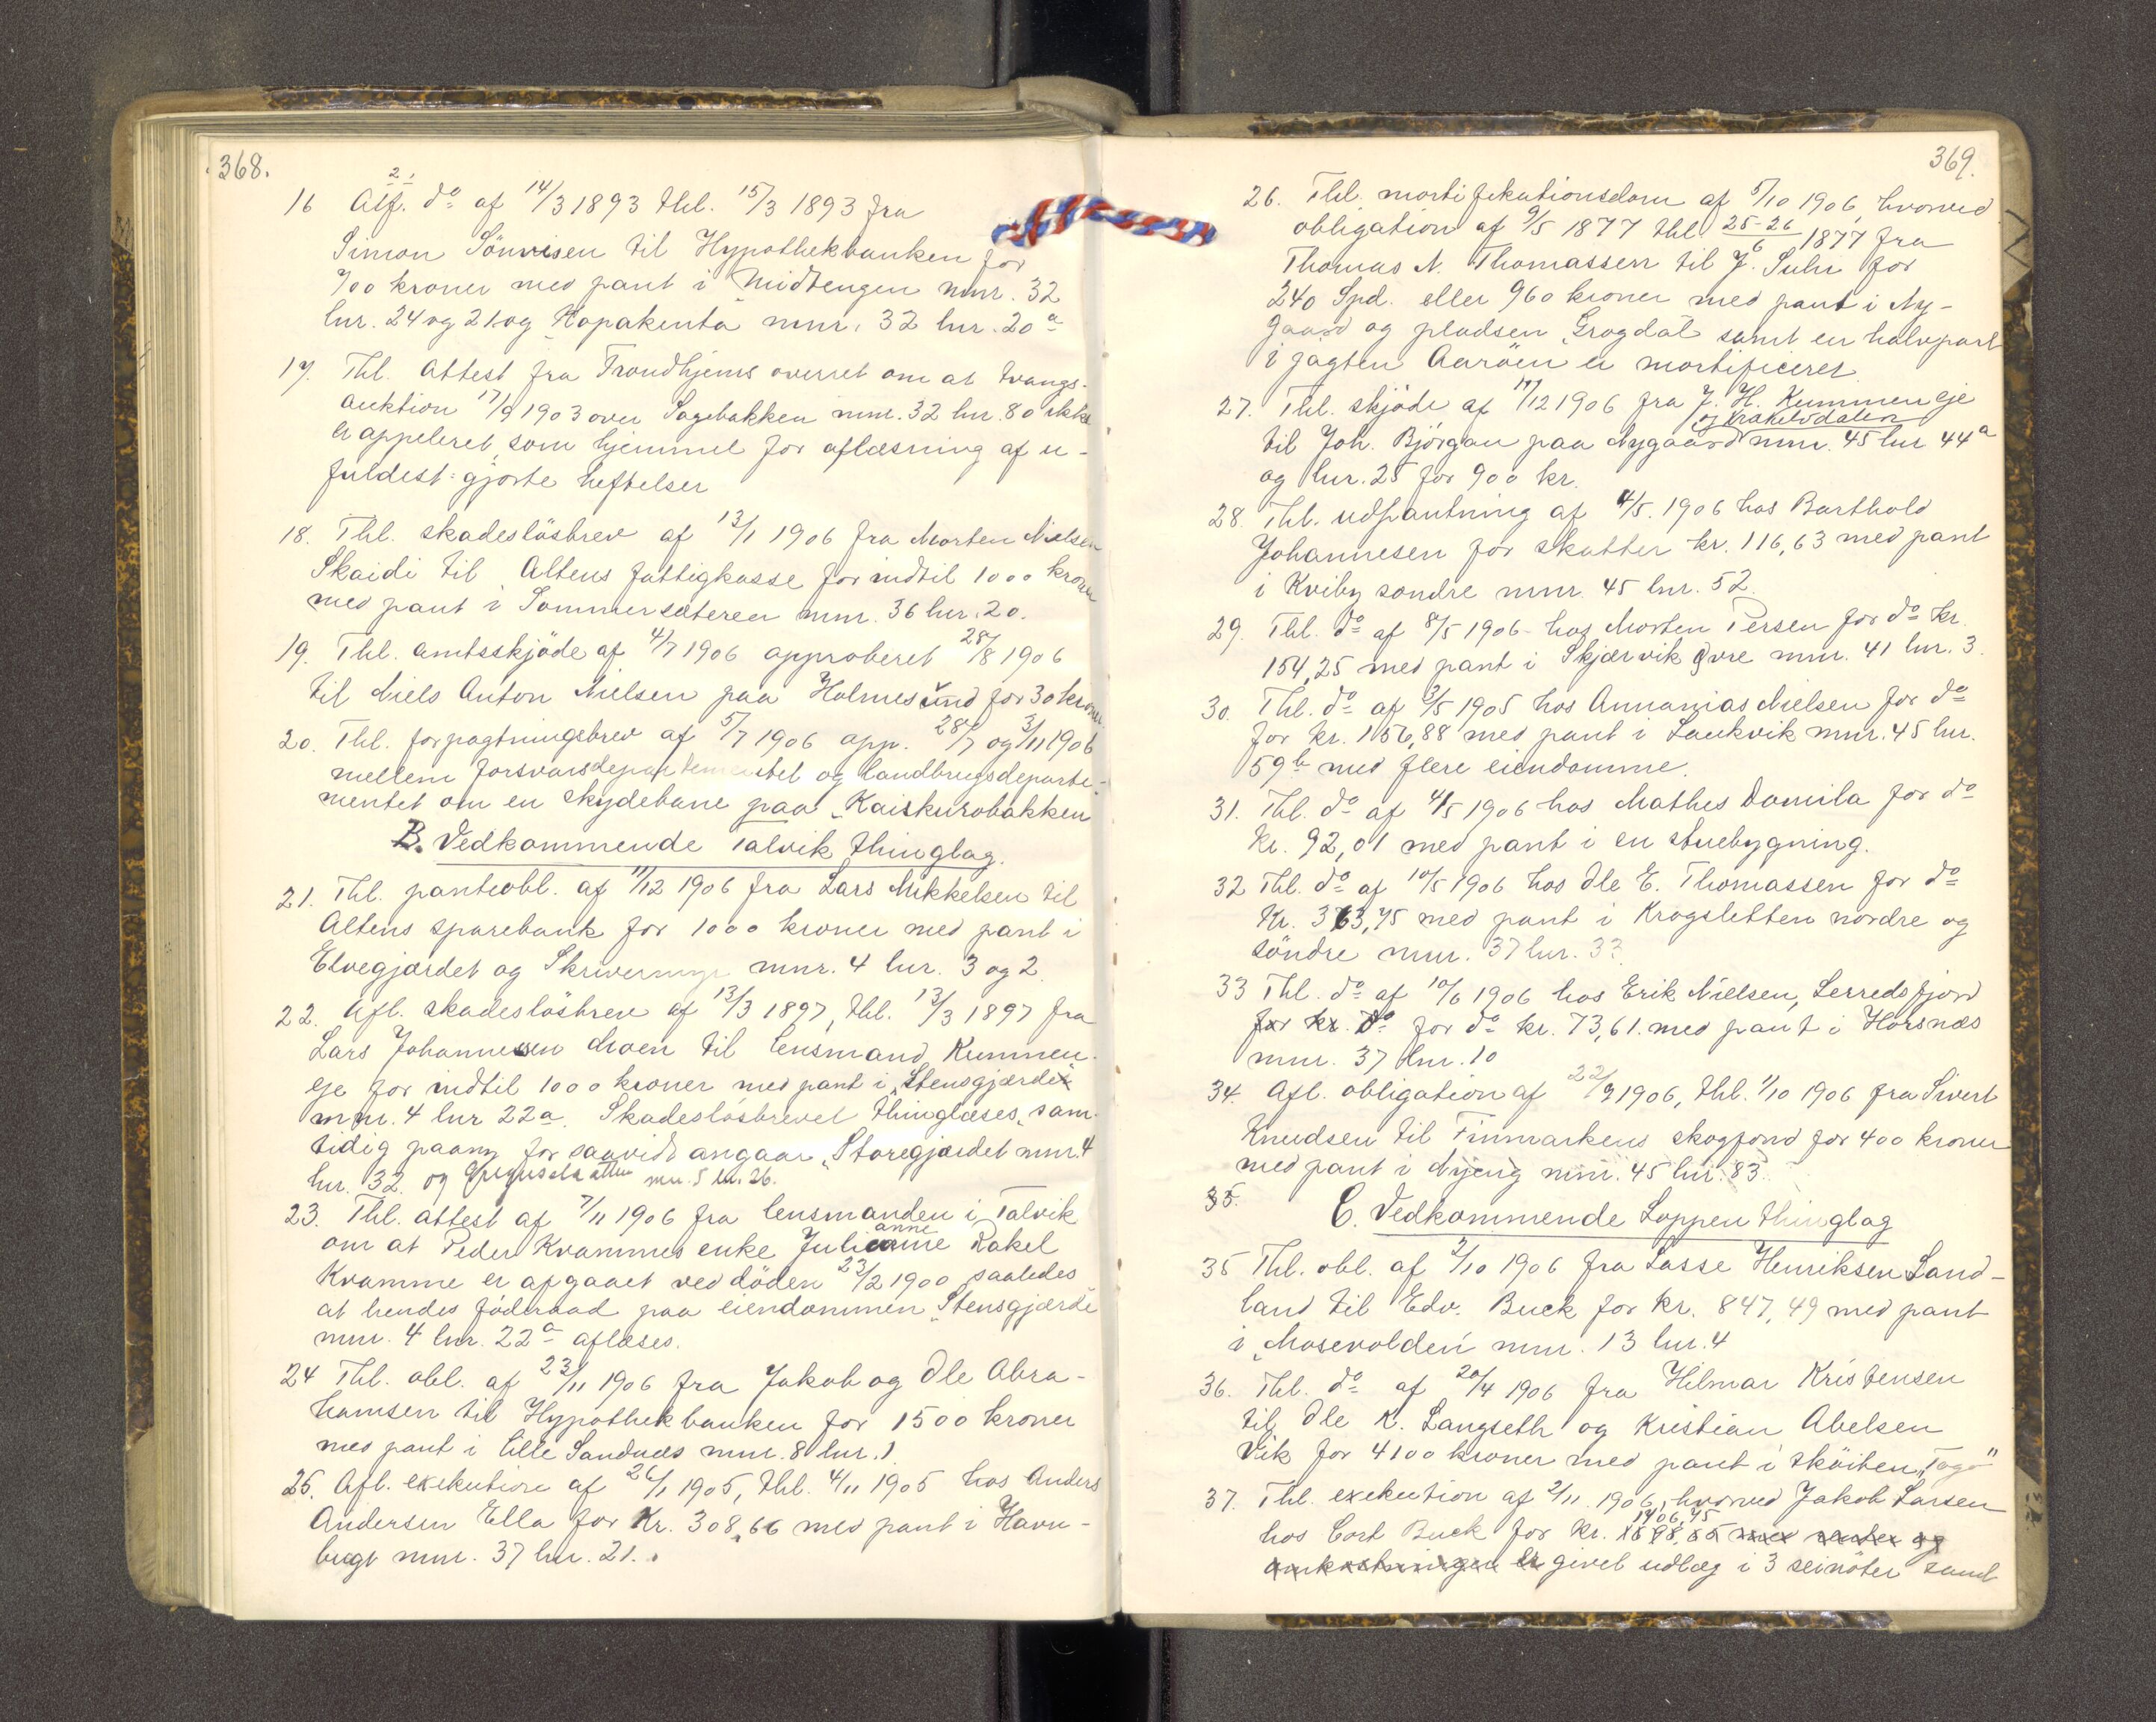 368.
16 Alf. do af 14/3 1893 thl. 15/3 1893 fra
Simon Sönvisen til Hypothekbanken for
700 kroner med pant i Midtengen mnr. 32
lnr. 24 og 21 og Kopakenta mnr. 32 lnr. 20a
17. Thl. Attest fra Trondhjems overret om at tvangs-
auktion 17/9 1903 over Sagebakken mnr. 32 lnr. 80 ikke
er appeleret, som hjemmel for aflæsning af u-
fuldest-gjorte heftelser
18. Thl. skadeslösbrev af 13/1 1906 fra Morten Nielsen
Skaidi til Altens fattigkasse for indtil 1000 kroner
med pant i Sommersæteren mnr. 36 lnr. 20.
19. Thl. amtsskjöde af 4/7 1906 approberet 28/8 1906
til Niels Anton Nielsen paa Holmesund for 30 kroner
20. Thl. forpagtningsbrev af 5/7 1906 app. 28/7 og 3/11 1906
mellem forsvarsdepartementet og landbrugsdeparte-
mentet om en skydebane paa „Kaiskurobakken
B. Vedkommende Talvik thinglag.
21. Thl. panteobl. af 11/12 1906 fra Lars Mikkelsen til
Altens sparebank for 1000 kroner med pant i
Elvegjærdet og Skrivermyr mnr. 4 lnr. 3 og 2
22. Afl. skadeslösbrev af 13/3 1897, thl. 13/3 1897 fra
Lars Johannessen Moen til lensmand Kummen-
eje for indtil 1000 kroner med pant i „Stensgjærde"
mnr. 4 lnr 22a. Skadeslösbrevet thinglæses, sam-
tidig paany for saavidt angaar „Storegjærdet mnr. 4
lnr. 32. og mnr. 5 lnr. 26.
23. Thl. attest af 7/11 1906 fra lensmanden i Talvik
om at Peder Kvammes enke Julianne anne Rakel
Kvamme er afgaaet ved döden 23/2 1900 saaledes
at hendes föderaad paa eiendommen „Stensgjærde
mnr. 4 lnr. 22a aflæses.
24 Thl. obl. af 23/11 1906 fra Jakob og Ole Abra-
hamsen til Hypothekbanken for 1500 kroner
med pant i lille Sandnæs mnr. 8 lnr. 1
25. Afl. exekution af 26/1 1905, thl. 4/11 1905 hos Anders
Andersen Ella for Kr. 308,66 med pant i Havn-
bugt mnr. 37 lnr. 21.
369.
26. Thl. mortifikationsdom af 5/10 1906, hvorved
obligation af 9/5 1877 thl. 25-26/6 1877 fra
Thomas N. Thomassen til J. Suhr for
240 Spd. eller 960 kroner med pant i Ny-
gaard og pladsen Grogdal samt en halvpart
i jagten Aaröen er mortificeret.
27. Thl. skjöde af 11/12 1906 fra J. H. Kummeneje
og Krakelvdalen
til Joh. Björgan paa Nygaard mnr. 45 lnr 44a
og lnr. 25 for 900 kr.
28. Thl. udpantning af 4/5. 1906 hos Barthold
Johannesen for skatter kr. 116,63 med pant
i Kviby söndre mnr. 45 lnr. 52.
29. Thl. do af 8/5 1906 hos Morten Persen for do kr.
154,25 med pant i Skjærvik övre mnr. 41 lnr. 3.
30. Thl. do af 3/5 1905 hos Annanias Nielsen for do
for kr. 156,88 med pant i Laukvik mnr. 45 lnr.
59b med flere eiendomme.
31. Thl. do af 4/5 1906 hos Mathis Domila for do
kr. 92,01 med pant i en stuebygning.
32 Thl. do af 10/5 1906 hos Ole E. Thomassen for do
Kr. 363,75 med pant i Krogsletten nordre og
söndre mnr. 37 lnr. 33
33 Thl. do af 10/6 1906 hos Erik Nielsen, Lerredsfjord
for kr. do for do kr. 73,61. med pant i Horsnæs
mnr. 37 lnr. 10
34. Afl. obligation af 22/9 1906, thl. 1/10 1906 fra Sivert
Knudsen til Finmarkens skogfond for 400 kroner
med pant i Nyeng mnr. 45 lnr. 83.
35.
C. Vedkommende Loppen thinglag
35 Thl. obl. af 2/10 1906 fra Lasse Henriksen Sand-
land til Edv. Buck for kr. 847,49 med pant
i „Mosevolden" mnr. 13 lnr. 4
36. Thl. do af 20/4 1906 fra Hilmar Kristensen
til Ole K. Langseth og Kristian Abelsen
Vik for 4100 kroner med pant i sköiten „Togo"
37. Thl. exekution af 2/11. 1906, hvorved Jakob Larsen
1706,45
hos Cort Buck for kr. med renter og
omkostninger er givet udlæg i 3 seinöter samt